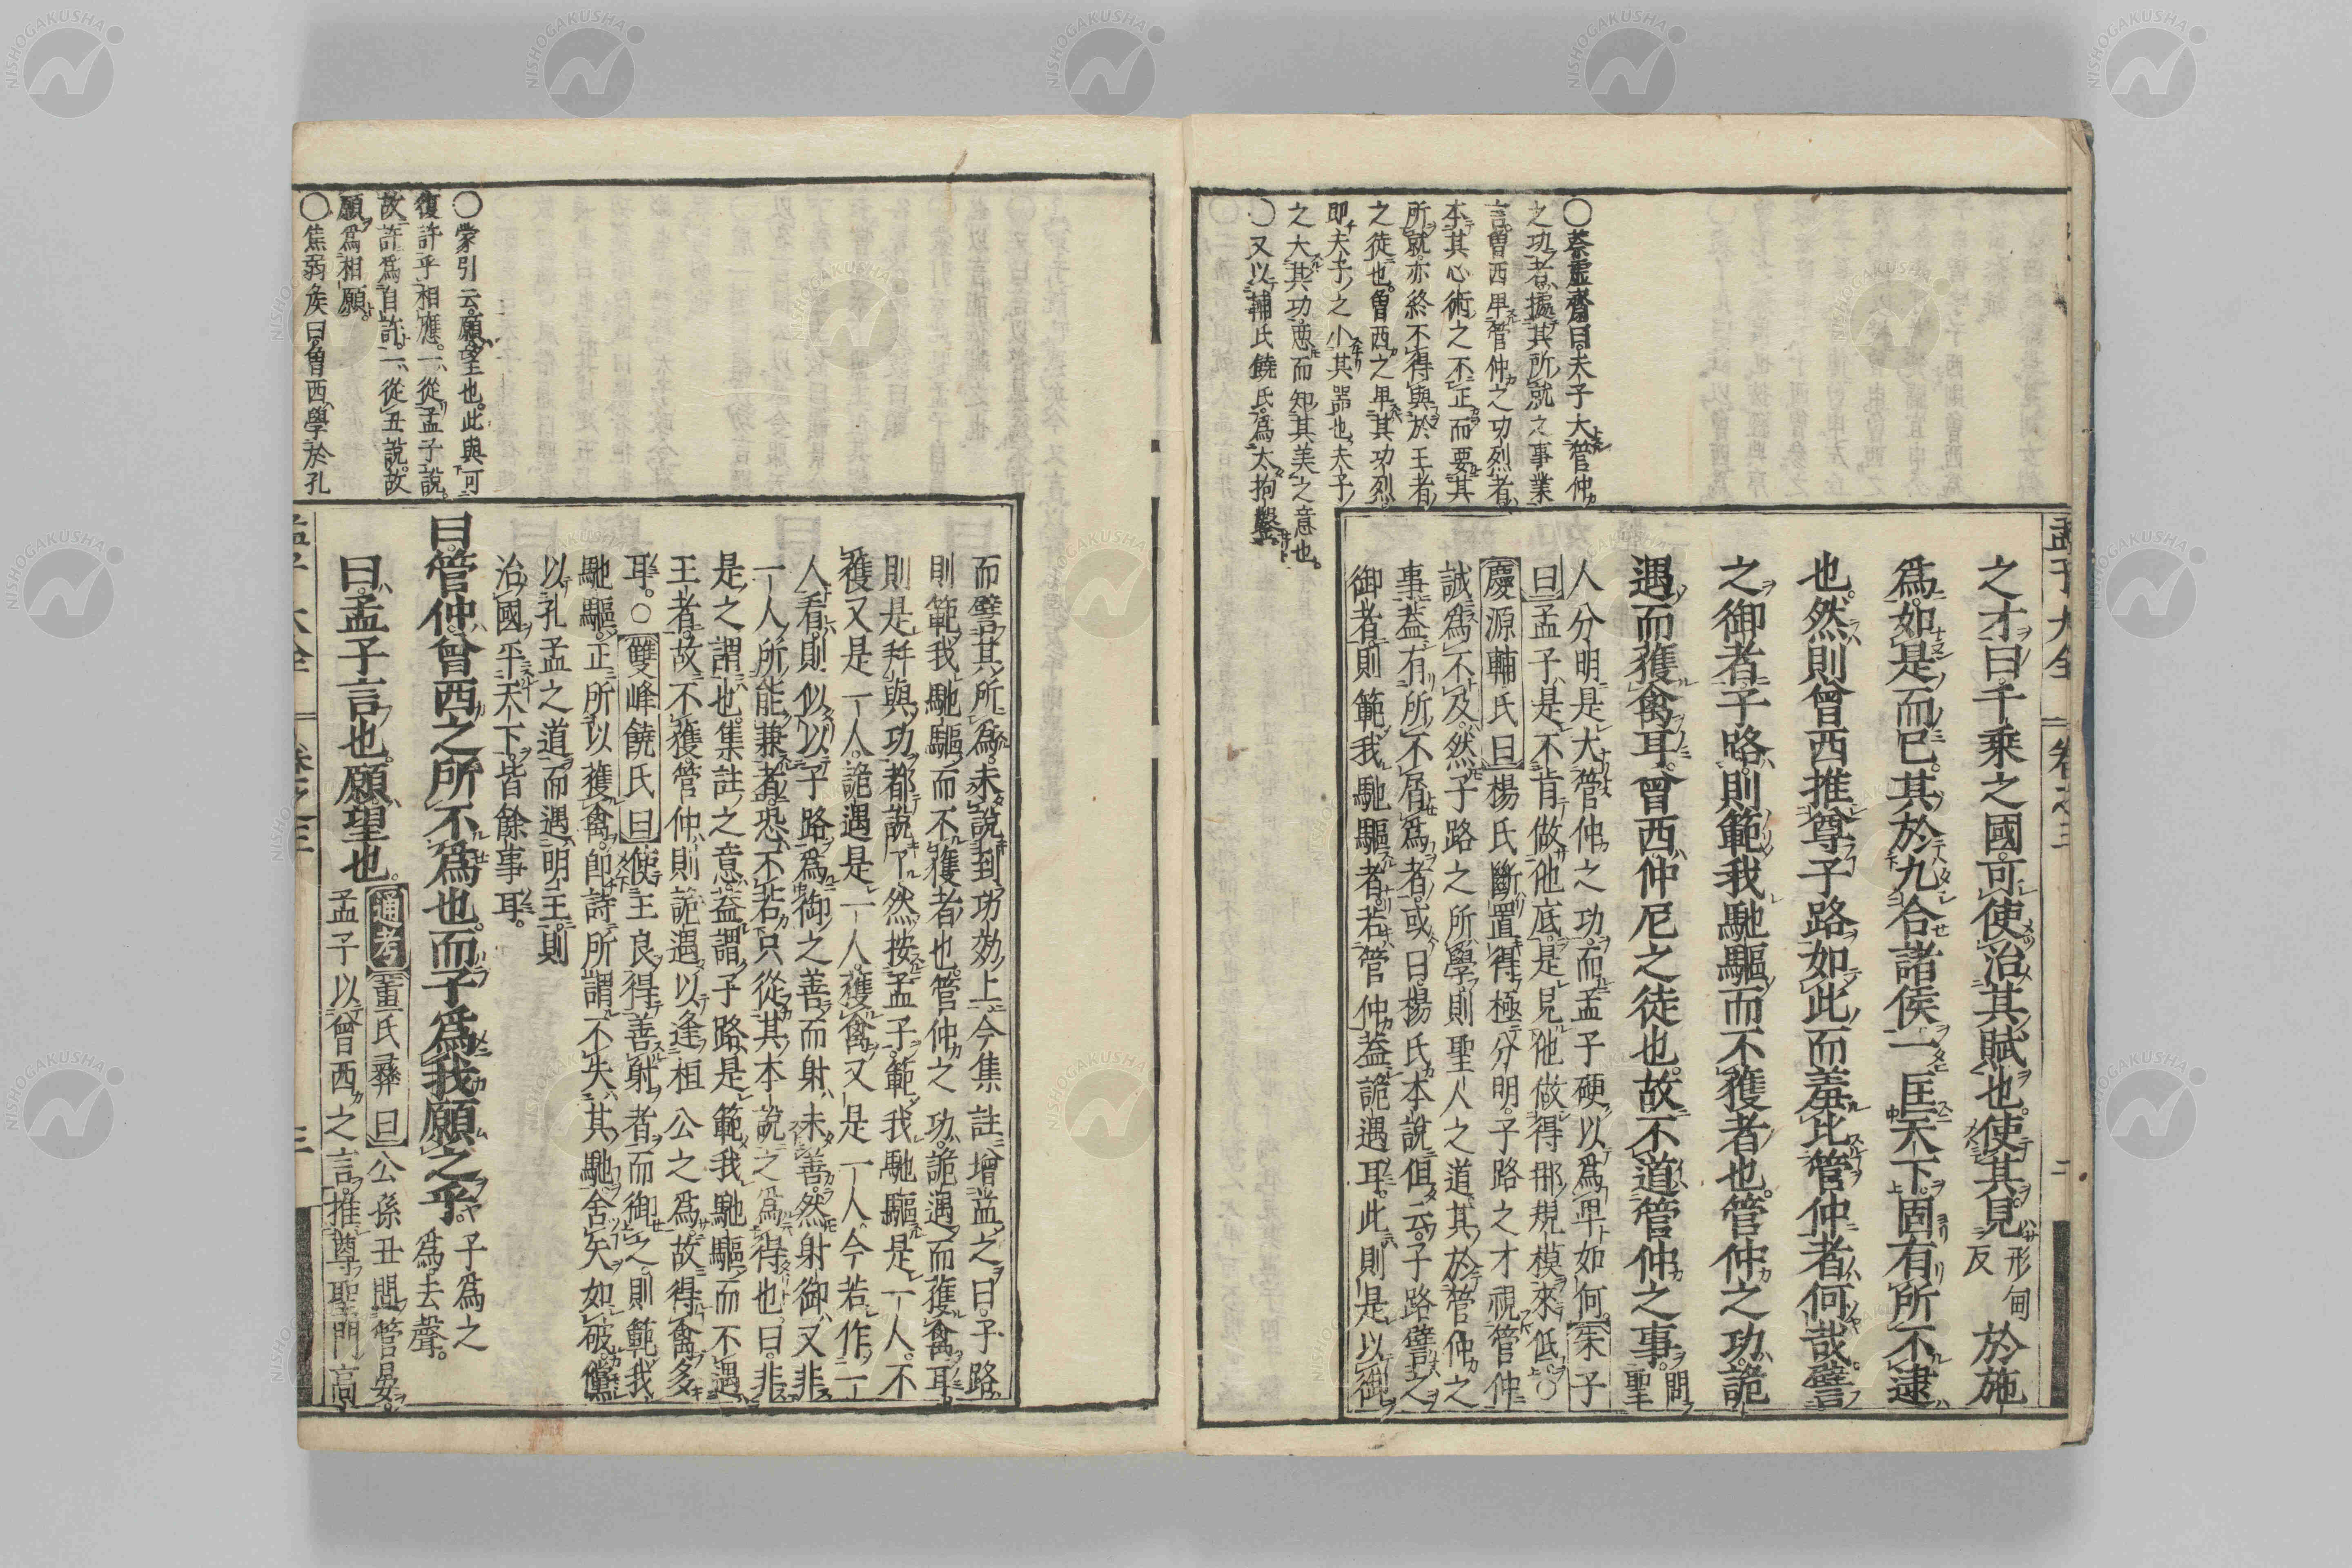 孟子大全 卷之三 二
○蔡虛齋曰。夫子大管仲
之功者。據其所就之事業
言。曾西卑管仲之功烈者。
本其心術之不正而要其
所就。亦終不得與於王者
之徒也。曾西之卑其功烈。
即夫子之小其器也。夫子
之大其功。悳而知其美之意也。
○又以輔氏饒氏。爲太拘鑿。
之才。曰。千乘之國。可使治其賦也。使其見形甸反於施
爲。如是而已。其於九合諸侯一匡天下。固有所不逮
也。然則曾西推尊子路如此。而羞比管仲者何哉。譬
之御者。子路。則範我馳驅而不獲者也。管仲之功。詭
遇而獲禽耳。曾西仲尼之徒也。故不道管仲之事。問聖
人分明是大管仲之功。而孟子硬以爲卑如何。朱子
曰孟子是不肯做他底。是見他做得那規模來低。○
慶源輔氏曰楊氏斷置得極分明。子路之才視管仲
誠爲不及。然子路之所學。則聖人之道。其於管仲之
事。蓋有所不屑爲者。或曰。楊氏本說但云。子路譬之
御者。則範我馳驅者。若管仲蓋詭遇耳。此則是以御
而譬其所爲。未說到功効上。今集註增益之曰。子路
則範我馳驅而不獲者也。管仲之功。詭遇而獲禽耳。
則是拜與功都說了。然按孟子。範我馳驅是一人。不
獲又是一人。詭遇是一人。獲禽又是一人。今若作一
人看。則似以子路爲御之善而射未善。然射御又非
一人所能兼者。恐不若只從其本說之爲得也。曰。非
是之謂也。集註之意。蓋謂子路是範我馳驅而不遇
王者。故不獲。管仲則詭遇以逢桓公之爲。故得禽多
耳。○雙峰饒氏曰使王良得善射者而御之。則範我
馳驅。正所以獲禽。卽詩所謂不失其馳。舍矢如破。儻
以孔孟之道而遇明主。則
治國平天下。皆餘事耳。
○蒙引云。願望也。此與可
復許乎相應。一從孟子說。
故許爲自許。一從丑說。故
願爲相願。
○焦弱矦曰。曾西學於孔
曰。管仲。曾西之所不爲也。而子爲我願之乎。子爲之
爲去聲。
曰。孟子言也。願望也。通考董氏彝曰公孫丑問管晏。
孟子以曾西之言。推尊聖門高
孟子大全 卷之三 三